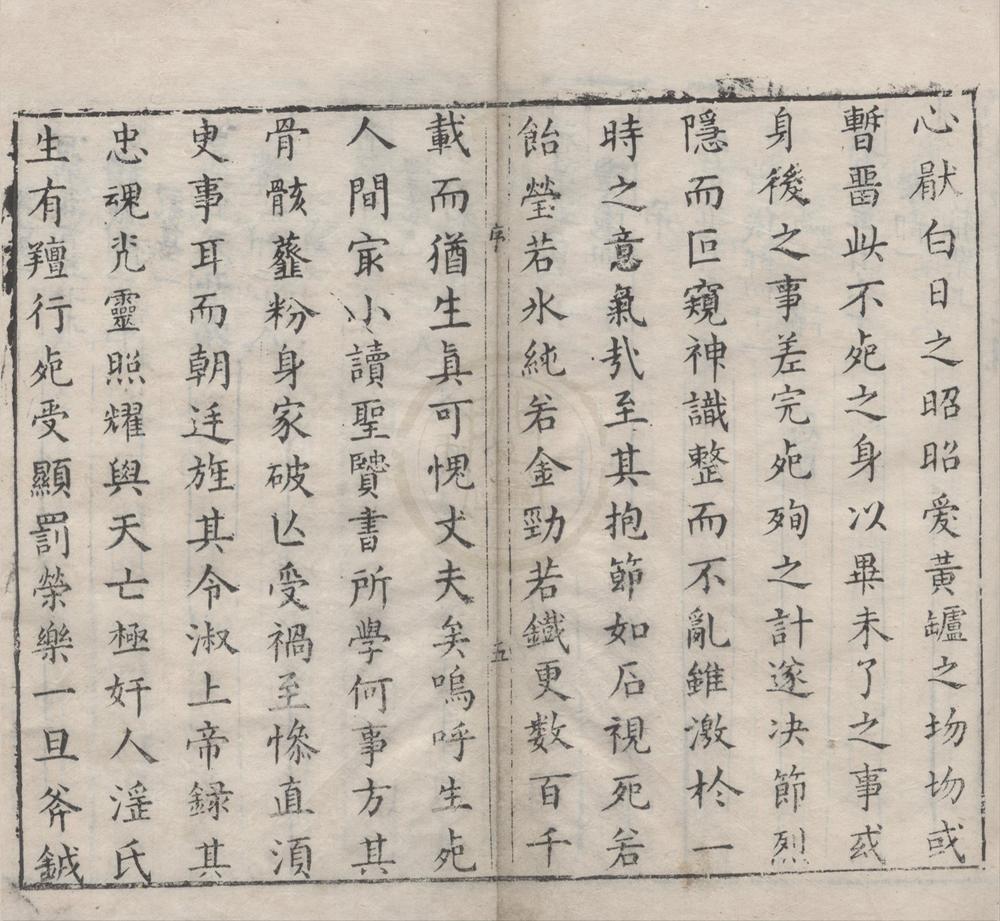 心厭白日之昭昭爱黃罏之埸埸或
暫畱此不𣦸之身以畢未了之事或
身後之事差完𣦸殉之計遂决節烈
隱而叵窺神識整而不亂雖激扵一
時之意氣㢤至其抱節如石視死若
飴瑩若氷純若金勁若鐵更数百千
序
五
載而猶生真可愧丈夫矣嗚呼生𣦸
人間㝡小讀聖賢書所學何事方其
骨骸虀粉身家破亾受禍至慘直湏
㪅事耳而朝廷旌其令淑上帝録其
忠魂灮靈照耀與天亡極奸人滛氏
生有羶行𣦸受顯罰榮樂一旦斧鉞